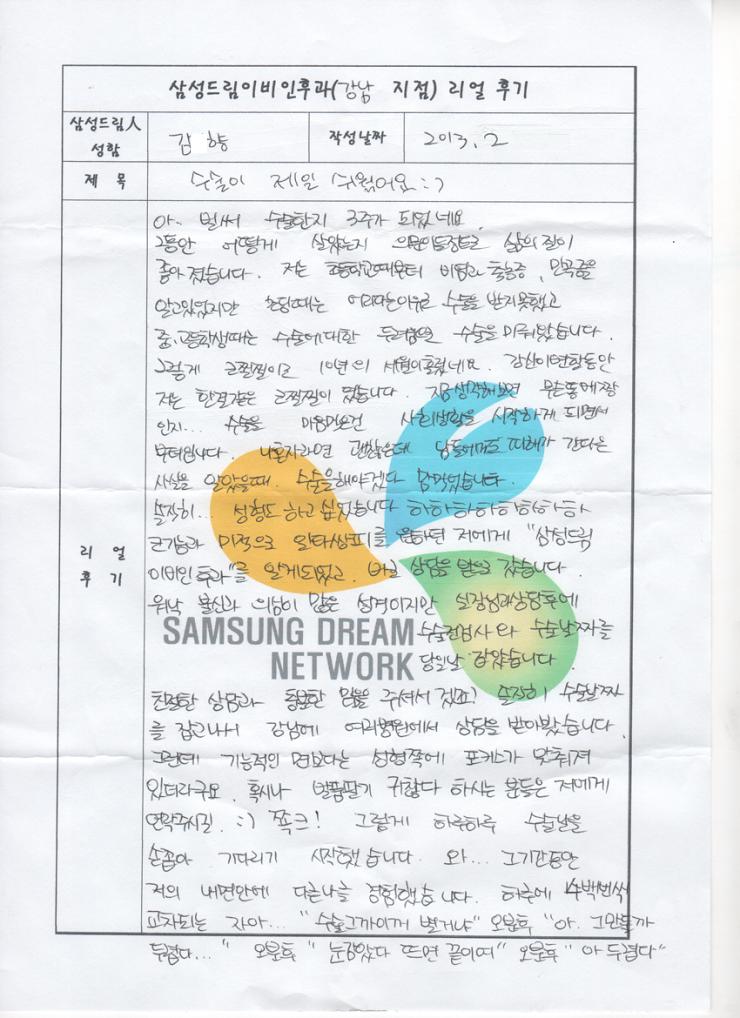 삼성드림이비인후과(강남 지점) 리얼 후기
삼성드림人
성함
김 향
작성날짜
2013. 2
제 목
수술이 제일 쉬웠어요 :)
리 얼
후 기
아~ 벌써 수술한지 3주가 되었네요.
그동안 어떻게 살았는지 의문이들정도로 삶의질이
좋아졌습니다. 저는 초등학교때부터 비염과 축농증, 만곡증을
알고있었지만 초딩때는 어리다는이유로 수술을 받지못했고
중,고등학생때는 수술에대한 두려움으로 수술을 미뤄왔습니다.
그렇게 코찔찔이로 10년의 세월이흘렀네요. 강산이변할동안
저는 한결같은 코찔찔이 였습니다. 지금생각해보면 무슨똥배짱
인지... 수술을 마음먹은건 사회생활을 시작하게 되면서
부터입니다. 나혼자라면 괜찮은데 남들에게도 피해가 간다는
사실을 알았을때. 수술을해야겠다 맘먹었습니다.
솔직히... 성형도 하고 싶었습니다 하하하하하하하하
코기능과 미적으로 일타쌍피를 원하던 저에게 "삼성드림
이비인후과"를 알게되었고. 바로 상담을 받으러 갔습니다.
워낙 불신과 의심이 많은 성격이지만 실장님과상담후에
수술전검사와 수술날짜를
당일날 잡았습니다.
SAMSUNG DREAM
NETWORK
친절한 상담과 충분한 믿음을 주셔서 겠죠? 솔직히 수술날짜
를 잡고나서 강남에 여러병원에서 상담을 받아봤습니다.
그런데 기능적인 면보다는 성형쪽에 포커스가 맞춰져
있더라구요. 혹시나 발품팔기 귀찮다 하시는 분들은 저에게
연락주시길. :) 쪼크! 그렇게 하루하루 수술날을
손꼽아 기다리기 시작했습니다. 와... 그기간동안
저의 내면안에 다른나를 경험했습니다. 하루에 수백번씩
교차되는 자아... "수술그까이게 별거냐" 오분후 "아. 그만둘까
두렵다..." 오분후 "눈감았다 뜨면 끝이여" 오분후 "아 두렵다"